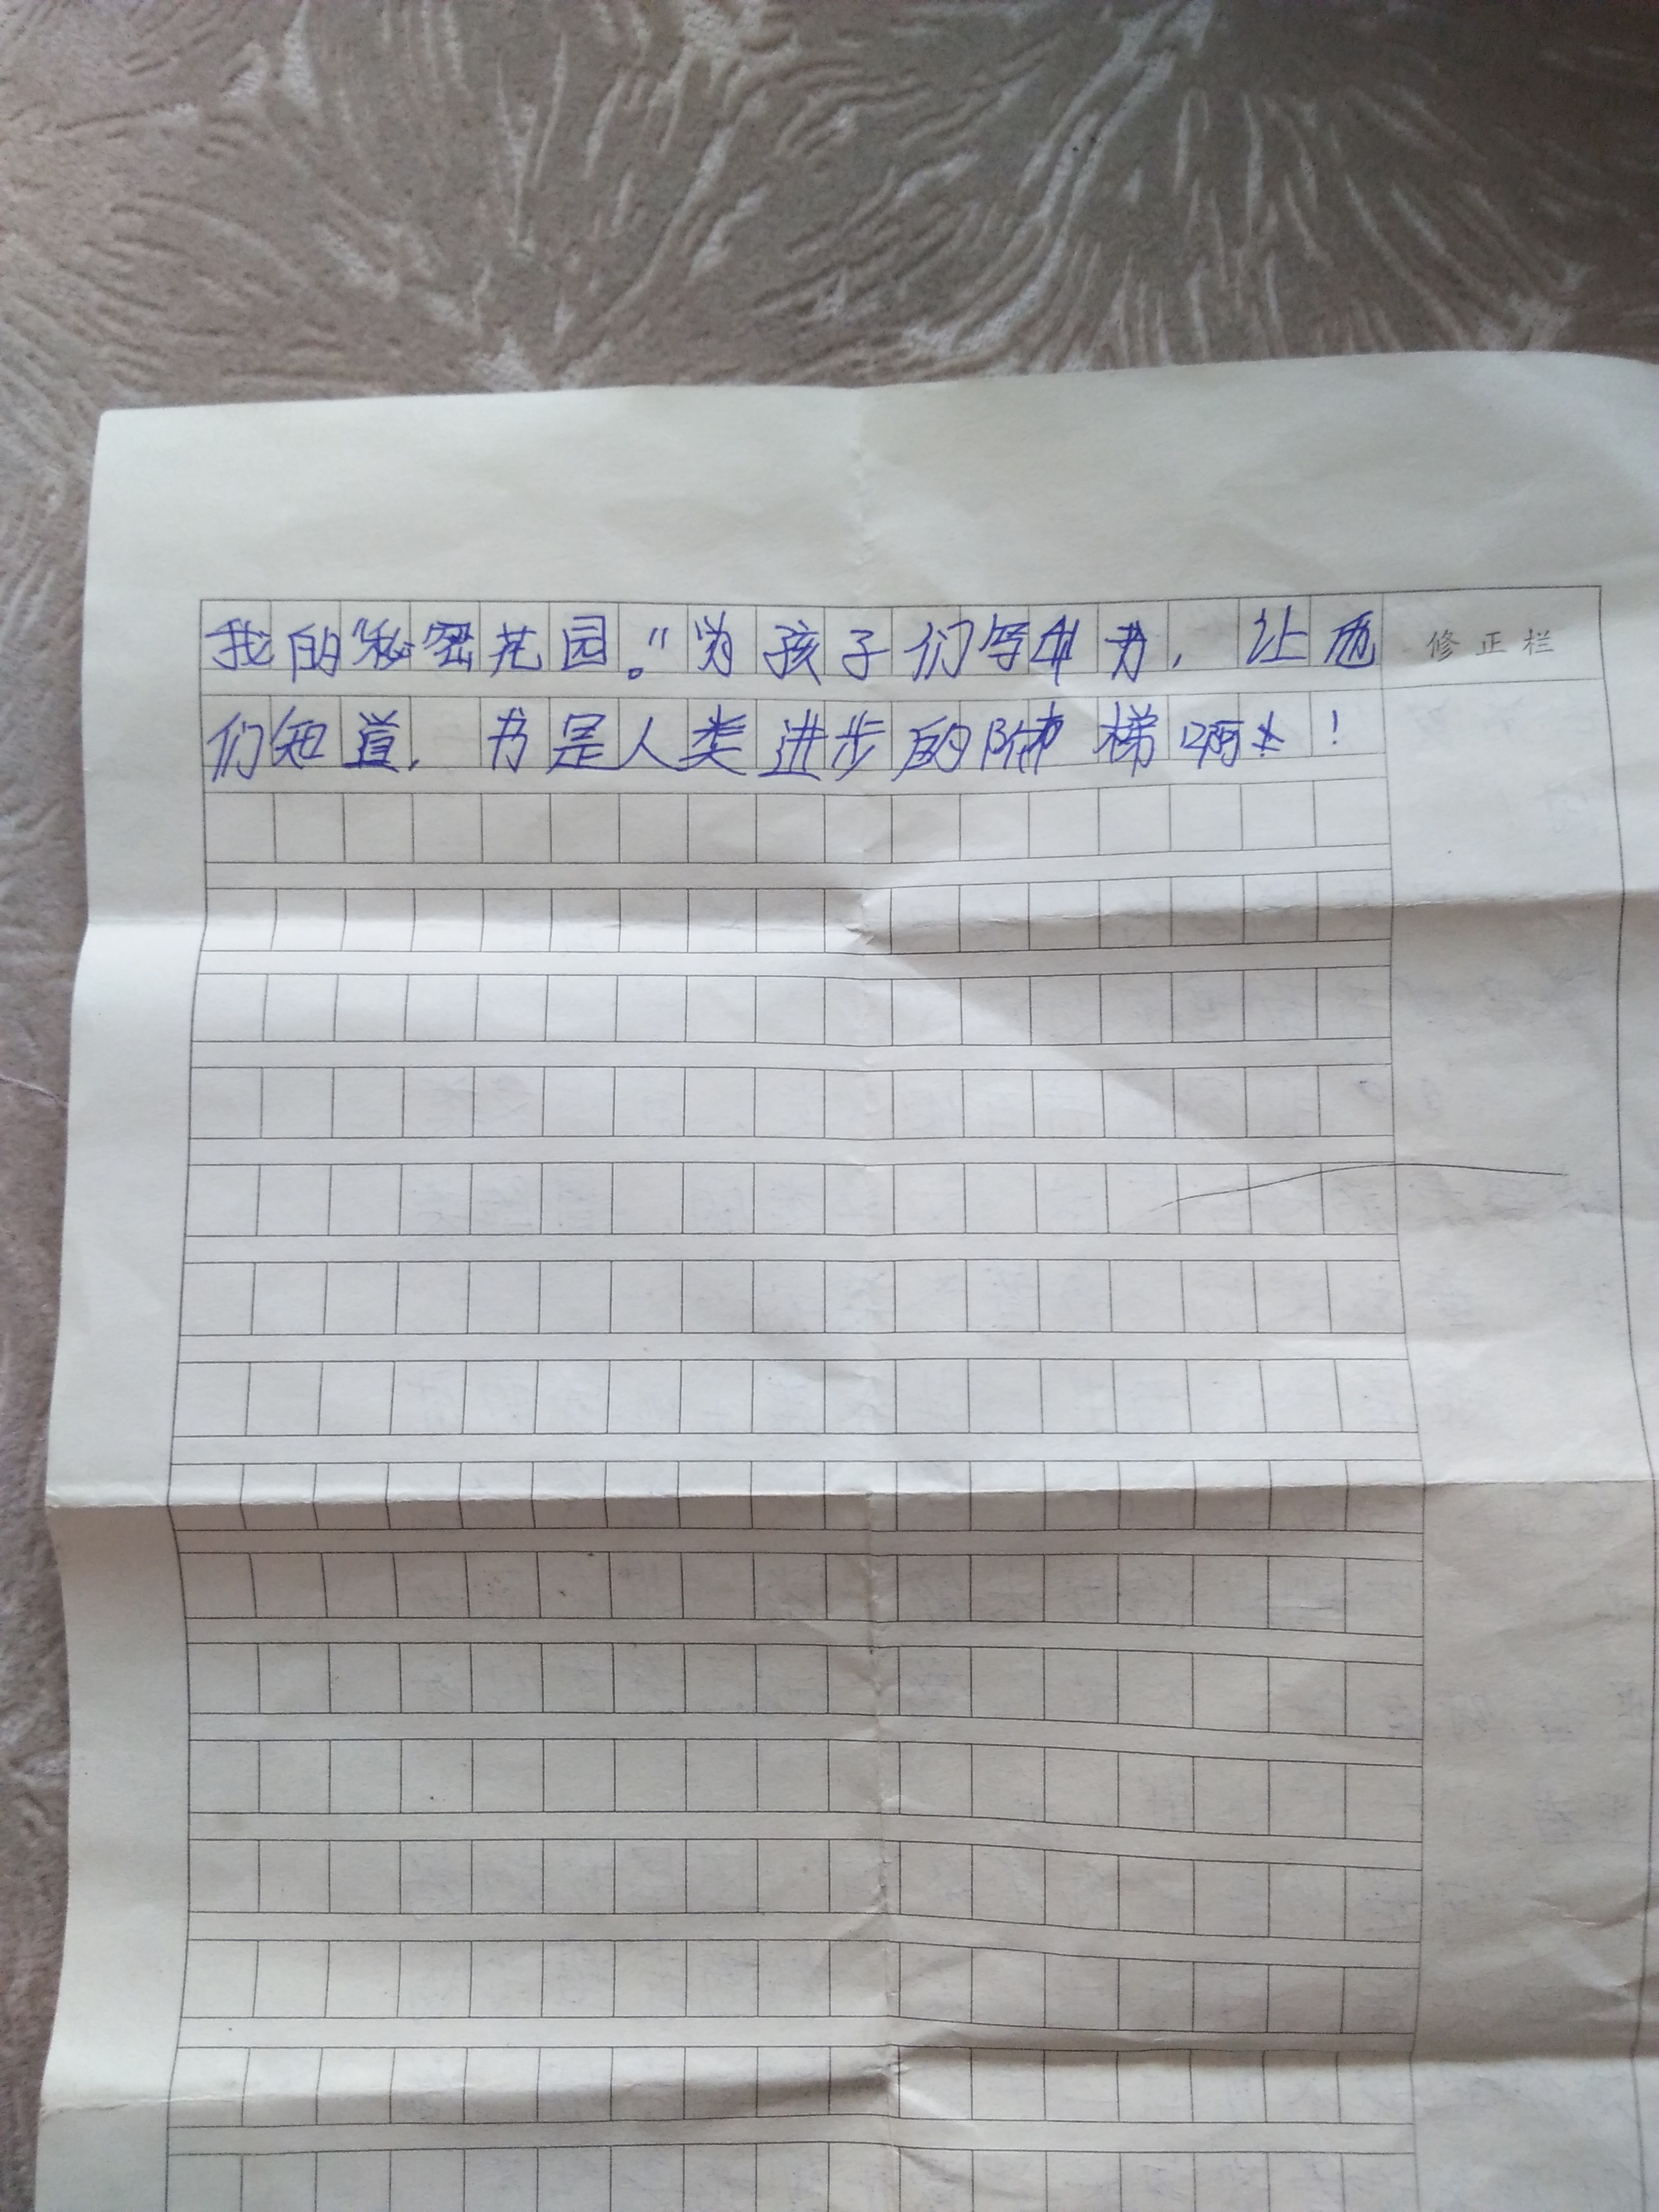 我的“秘密花园。”为孩子们写本书，让他
修正栏
们知道，书是人类进步的阶梯啊！